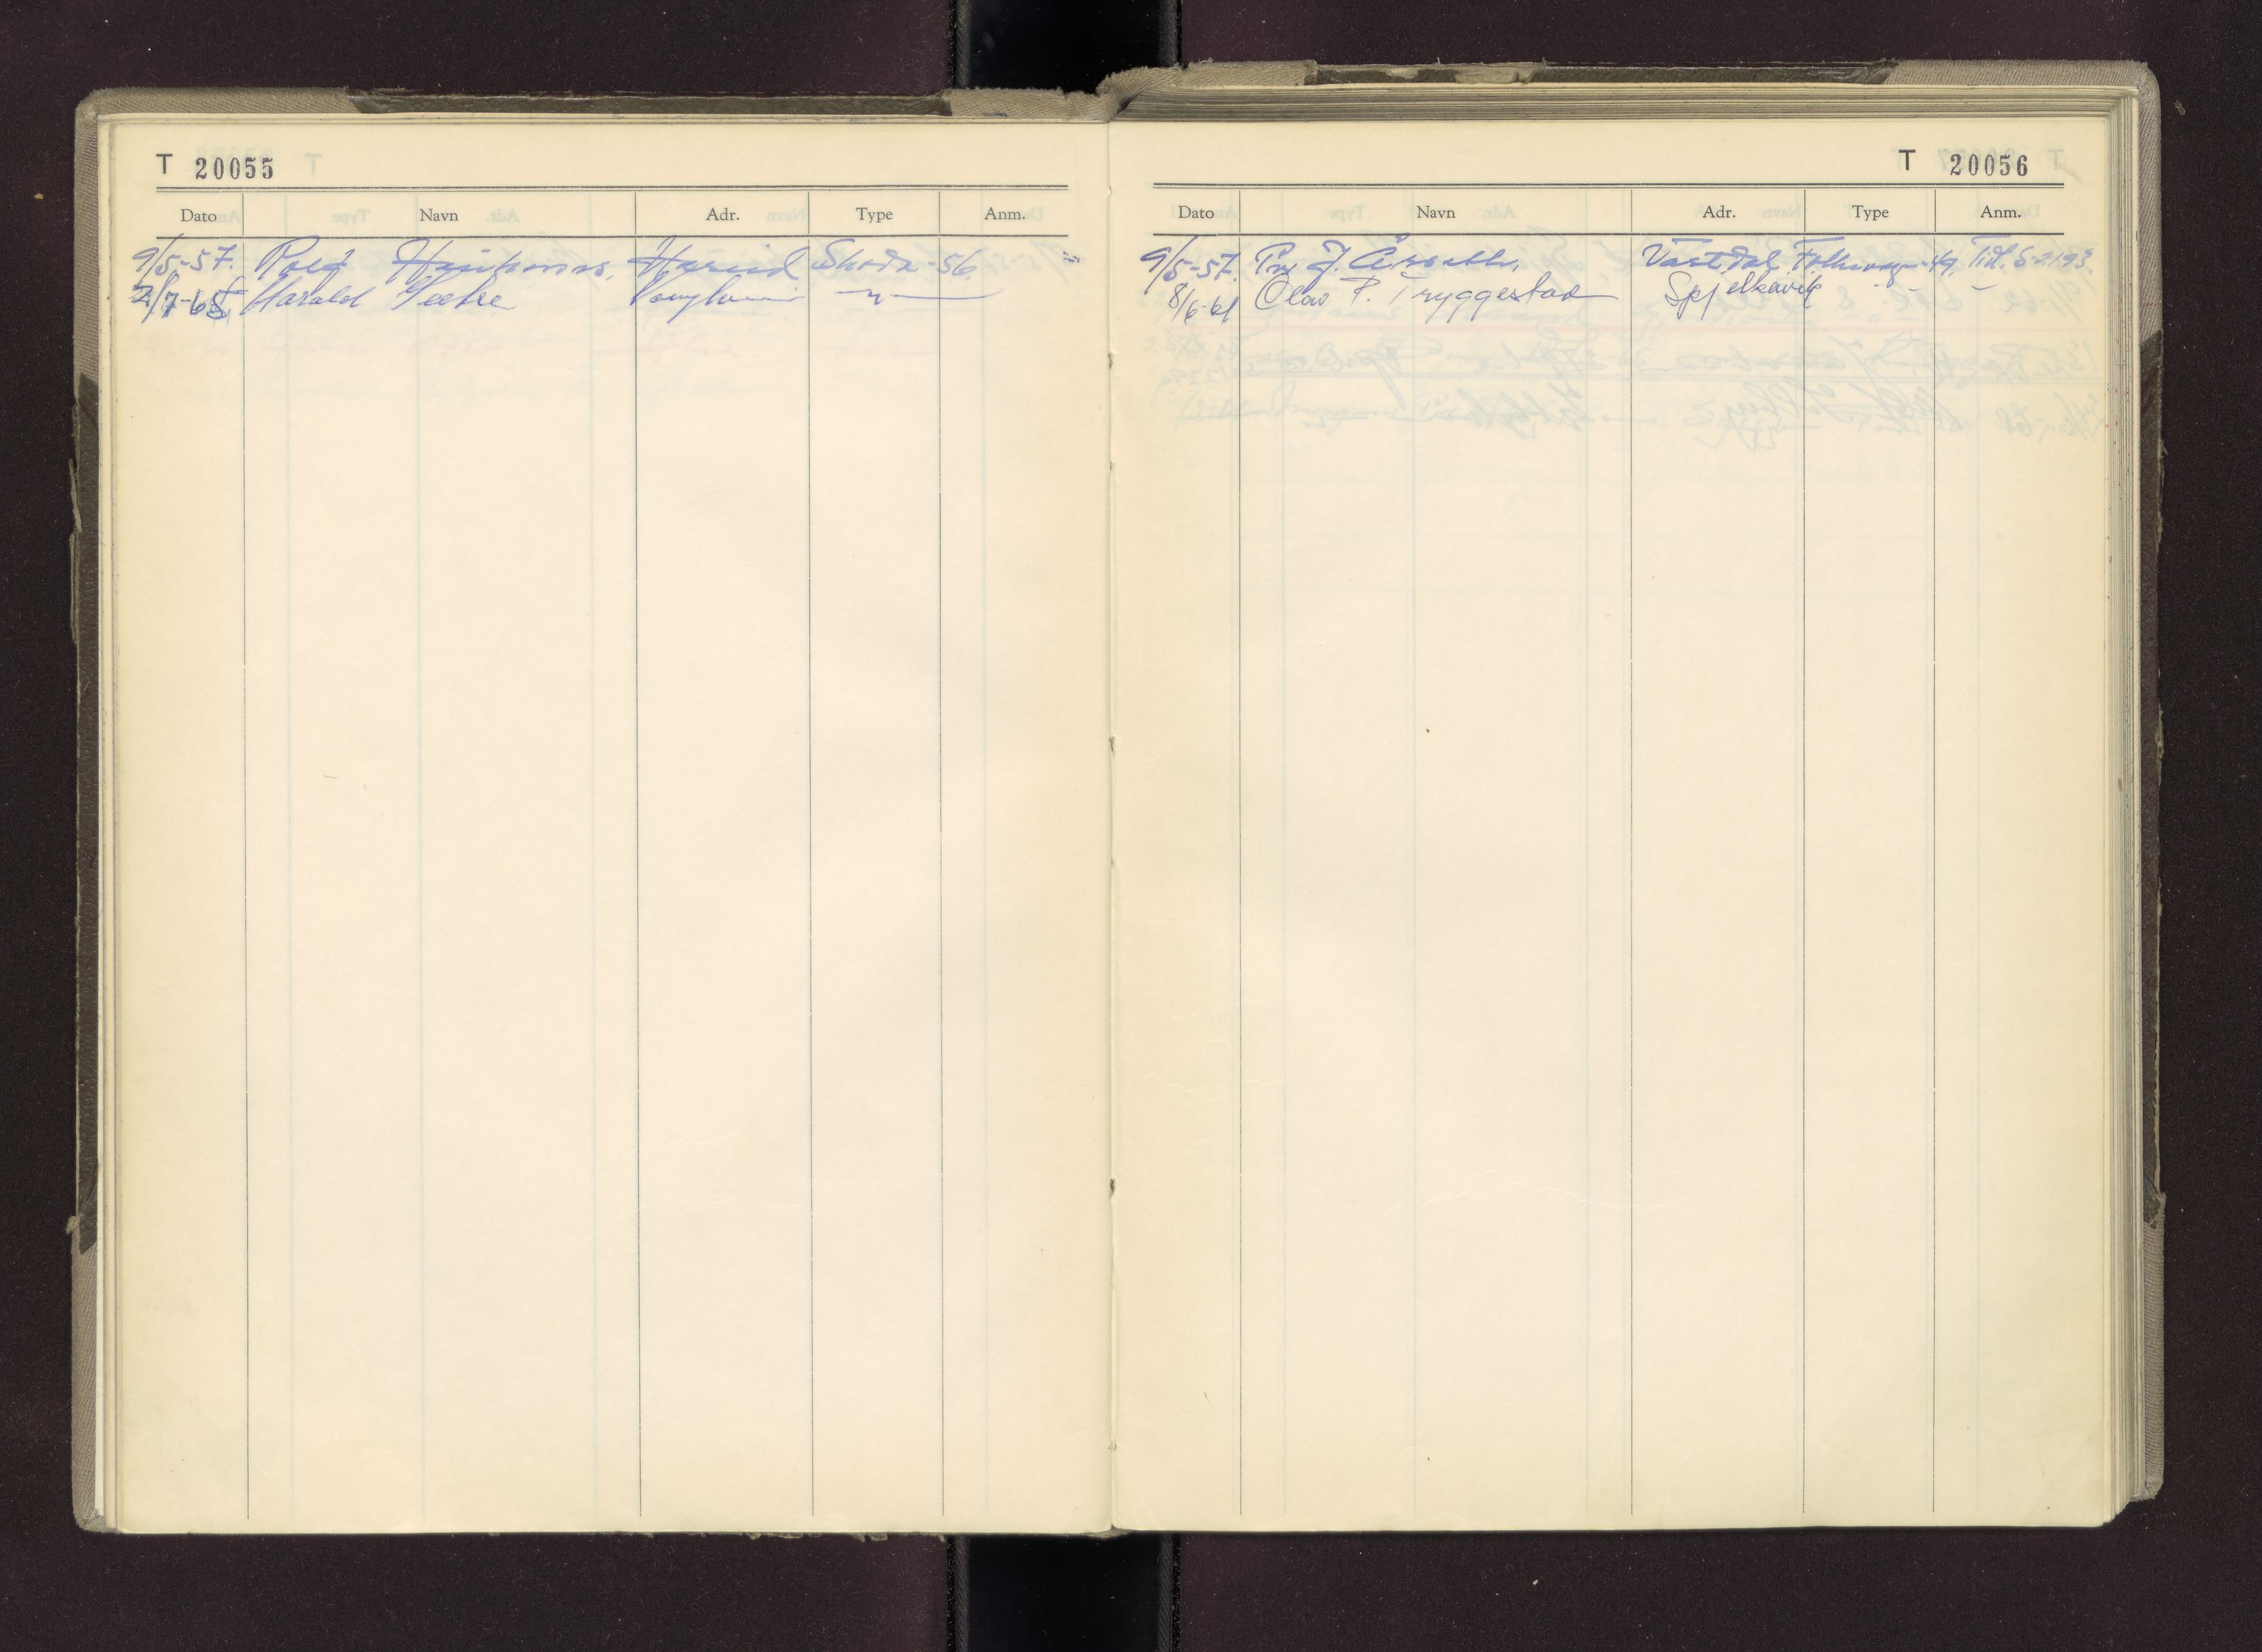 T 20055
Dato Navn Adr. Type Anm.
9/5-57. Rolf Hareid Skoda-56.
2/7-65 Harald
T 20056
Dato Navn Adr. Type Anm.
9/5-57. Per J. Vartdal Folkevogn-49. Tidl. S-2193.
8/6-61 Olav P. Tryggestad Spjelkavik